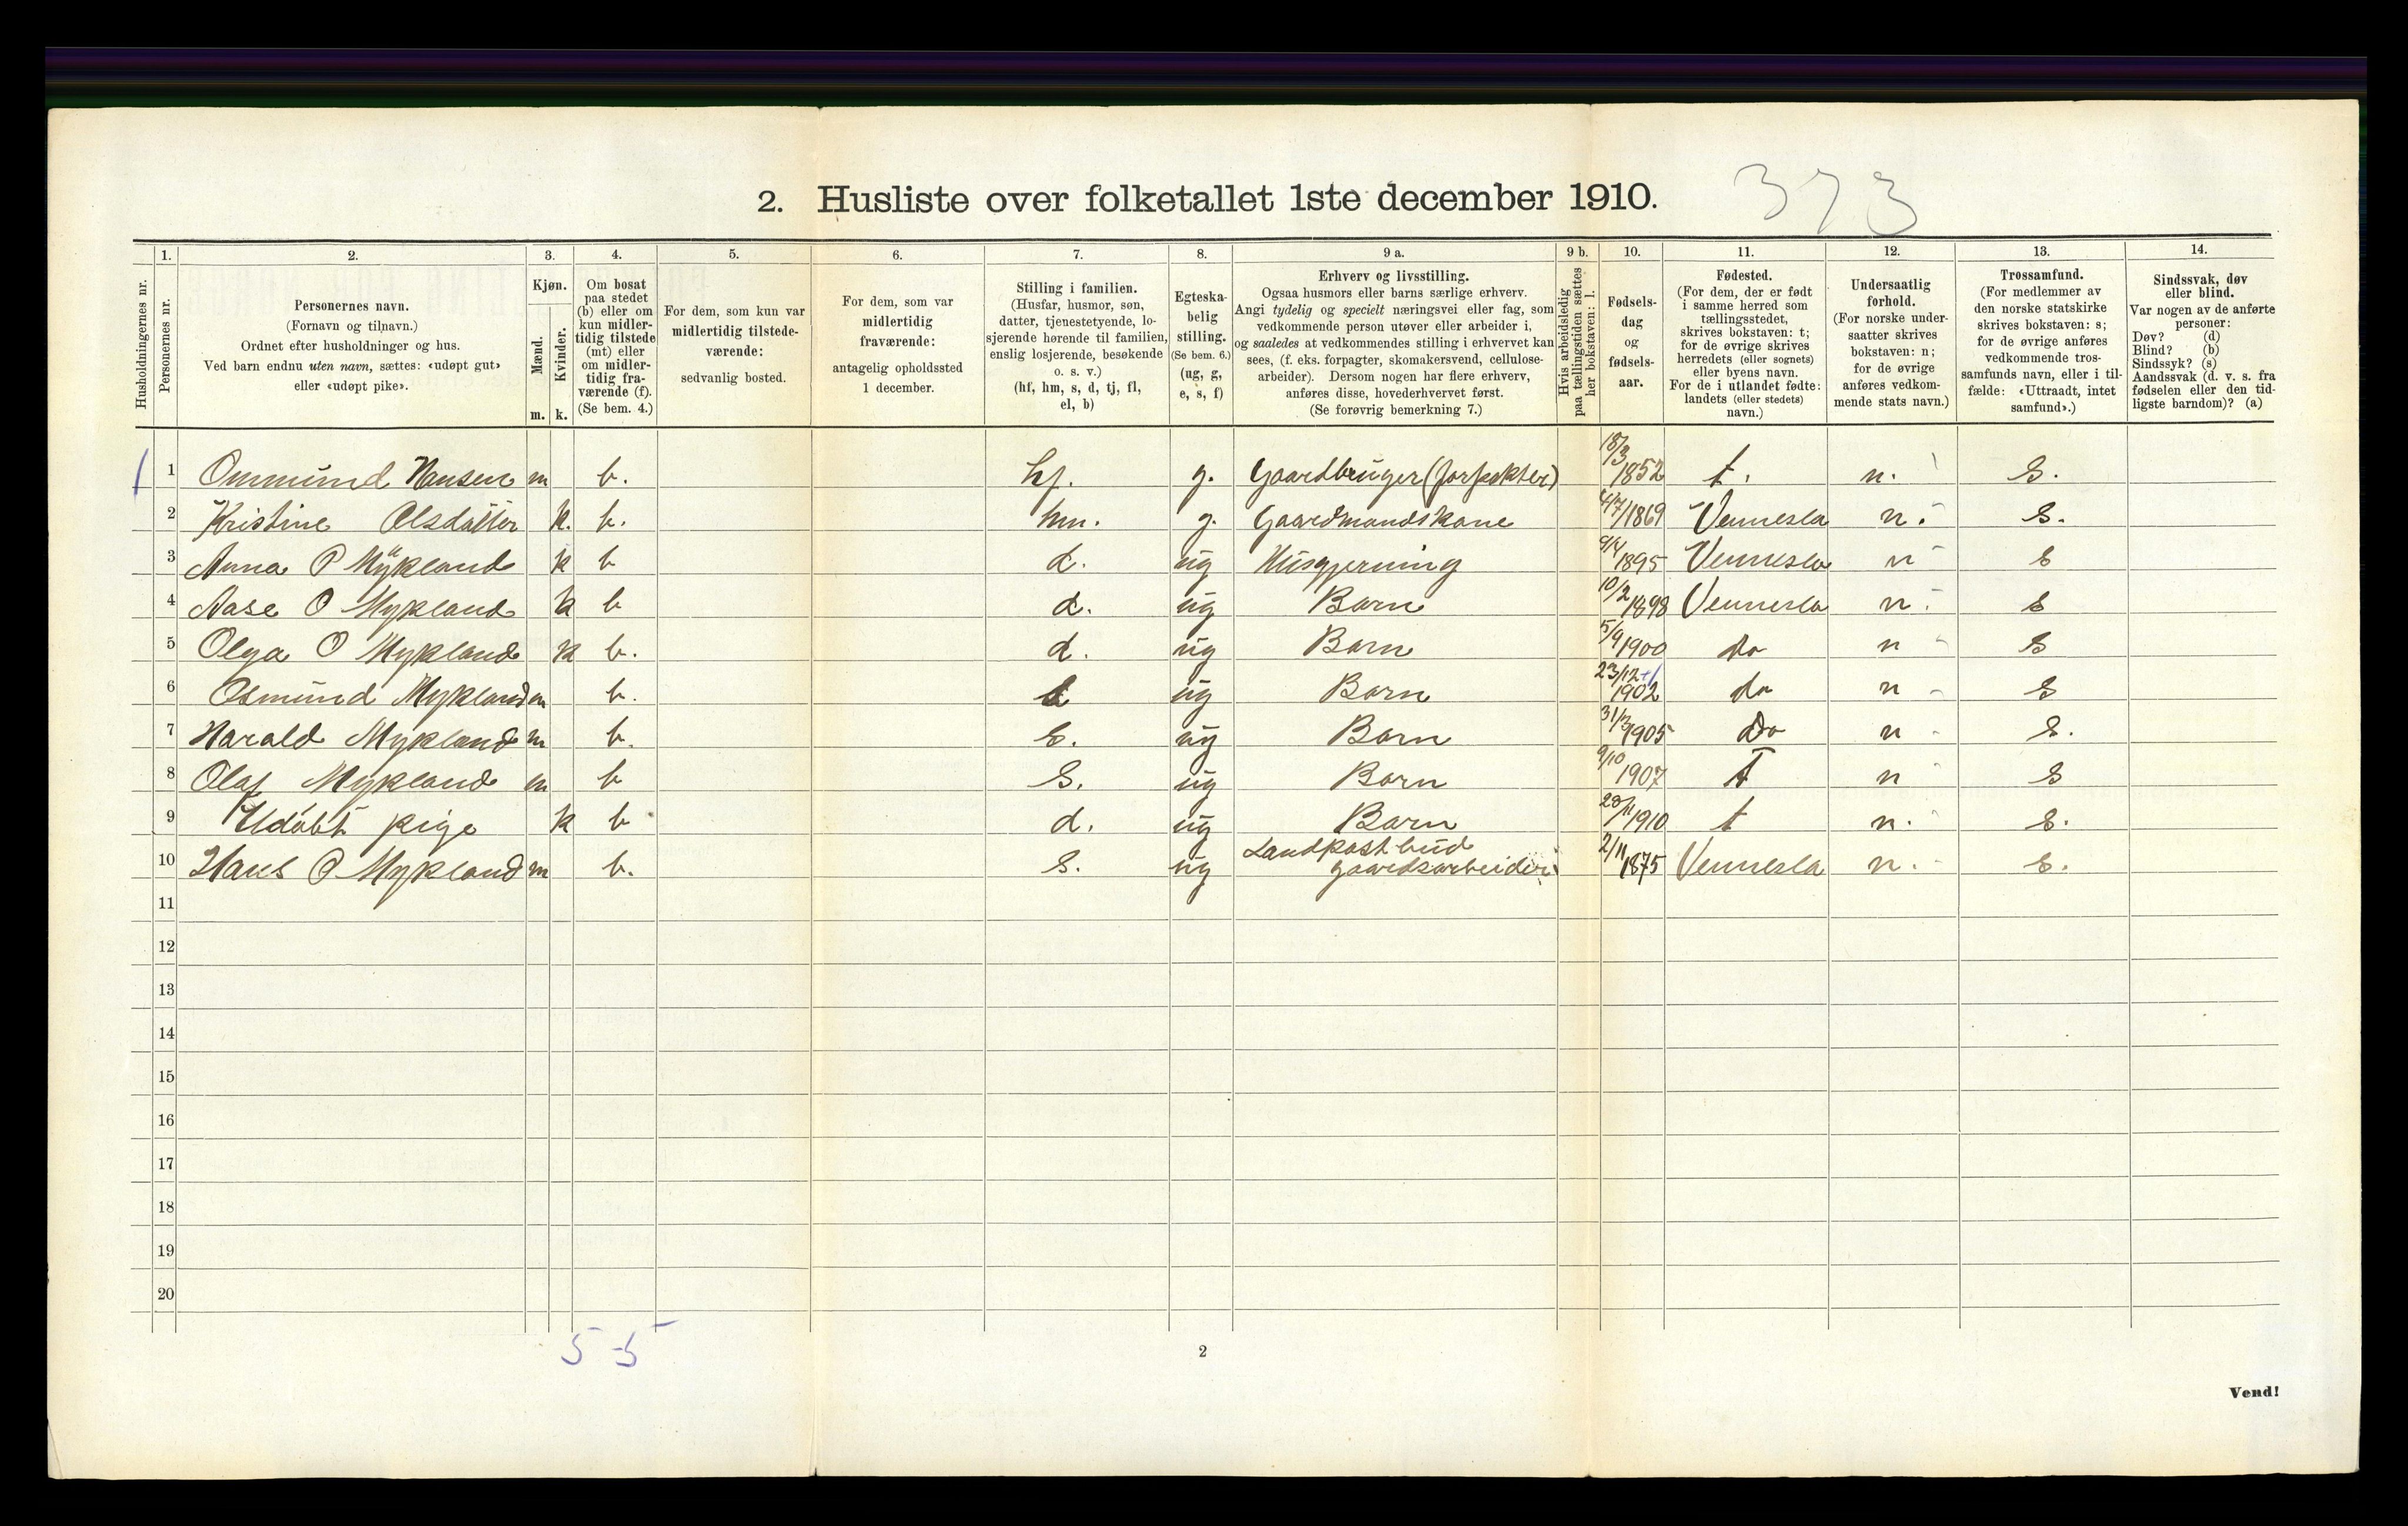 2. Husliste over folketallet 1ste december 1910. 373
1. 2. 3. 4. 5. 6. 7. 8. 9 a. 9 b. 10. 11. 12. 13. 14.
Husholdningernes nr.
Personernes nr.
Personernes navn.
(Fornavn og tilnavn.)
Ordnet efter husholdninger og hus.
Ved barn endnu uten navn, sættes: «udøpt gut»
eller «udøpt pike».
Kjøn.
Mænd.
m.
Kvinder.
k.
Om bosat
paa stedet
(b) eller om
kun midler-
tidig tilstede
(mt) eller
om midler-
tidig fra-
værende (f).
(Se bem. 4.)
For dem, som kun var
midlertidig tilstede-
værende:
sedvanlig bosted.
For dem, som var
midlertidig
fraværende:
antagelig opholdssted
1 december.
Stilling i familien.
(Husfar, husmor, søn,
datter, tjenestetyende, lo-
sjerende hørende til familien,
enslig losjerende, besøkende
o. s. v.)
(hf, hm, s, d, tj, fl,
el, b)
Egteska-
belig
stilling.
(Se bem. 6.)
(ug, g,
e, s, f)
Erhverv og livsstilling.
Ogsaa husmors eller barns særlige erhverv.
Angi tydelig og specielt næringsvei eller fag, som
vedkommende person utøver eller arbeider i,
og saaledes at vedkommendes stilling i erhvervet kan
sees, (f. eks. forpagter, skomakersvend, cellulose-
arbeider). Dersom nogen har flere erhverv,
anføres disse, hovederhvervet først.
(Se forøvrig bemerkning 7.)
Hvis arbeidsledig
paa tællingstiden sættes
her bokstaven: l.
Fødsels-
dag
og
fødsels-
aar.
Fødested.
(For dem, der er født
i samme herred som
tællingsstedet,
skrives bokstaven: t;
for de øvrige skrives
herredets (eller sognets)
eller byens navn.
For de i utlandet fødte:
landets (eller stedets)
navn.)
Undersaatlig
forhold.
(For norske under-
saatter skrives
bokstaven: n;
for de øvrige
anføres vedkom-
mende stats navn.)
Trossamfund.
(For medlemmer av
den norske statskirke
skrives bokstaven: s;
for de øvrige anføres
vedkommende tros-
samfunds navn, eller i til-
fælde: «Uttraadt, intet
samfund».)
Sindssvak, døv
eller blind.
Var nogen av de anførte
personer:
Døv? (d)
Blind? (b)
Sindssyk? (s)
Aandssvak (d. v. s. fra
fødselen eller den tid-
ligste barndom)? (a)
1 1 Ommund Hansen m b. hf. g. Gaardbruger (forpakter) 18/3 1852 t. n. s.
2 Kristine Olsdatter k. b. hm. g. Gaardmandskone 4/7 1869 Vennesla n. s.
3 Anna O Mykland k b d. ug Husgjerning 9/4 1895 Vennesla n s
4 Aase O Mykland k b d. ug Barn 10/2 1898 Vennesla n s
5 Olga O Mykland k b. d. ug Barn 5/9 1900 do n s
6 Osmund Mykland m b. s ug Barn 23/12 1902 do n s
7 Harald Mykland m b. s. ug Barn 31/3 1905 Do n s.
8 Olaf Mykland m b s. ug Barn 9/10 1907 T n s
9 Udøbt pige k b d. ug Barn 28/11 1910 t n. s.
10 Hans O Mykland m b. s. ug Landpostbud gaardsarbeider 2/11 1875 Vennesla n. s.
11
12
13
14
15
16
17
18
19
20
5-5
2
Vend!